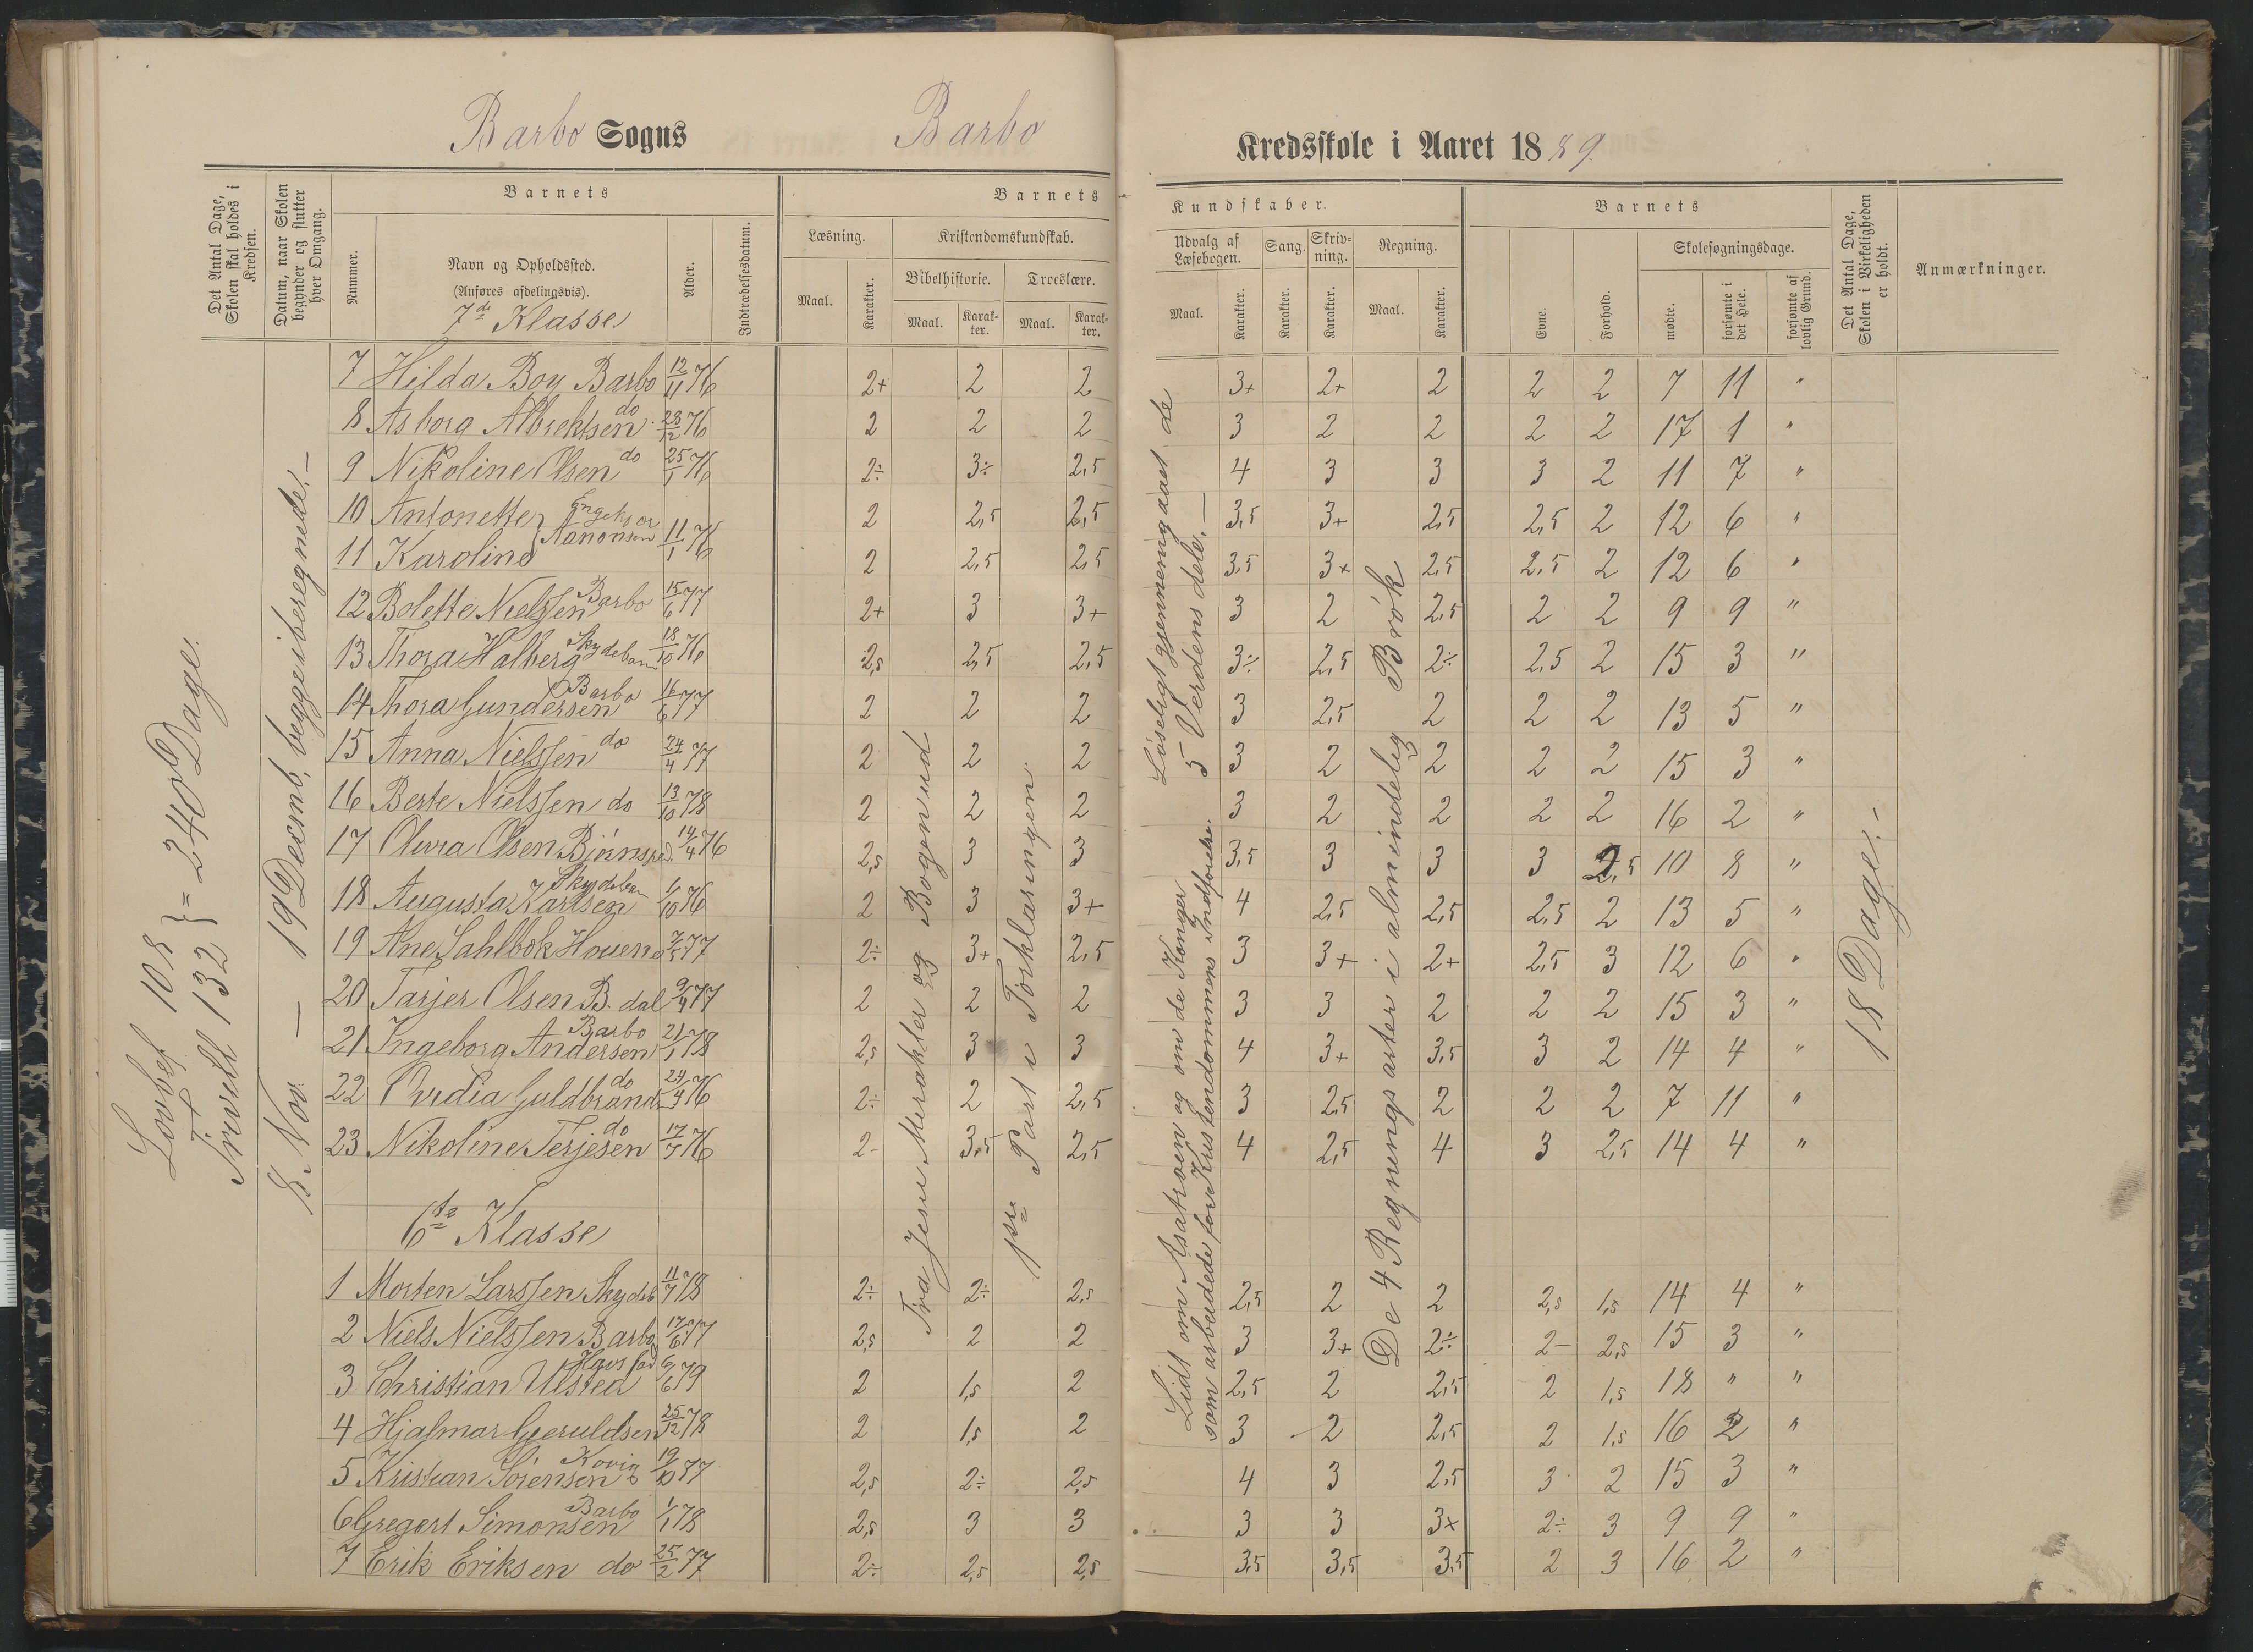 Barbo Sogns Barbo Kredsskole i Aaret 1889.
Det Antal Dage, Skolen skal holdes i Kredsen.
Datum, naar Skolen begynder og slutter hver Omgang.
Barnets
Nummer.
Navn og Opholdssted.
(Anføres afdelingsvis).
7de Klasse
Alder.
Indtrædelsesdatum.
Barnets Kundskaber.
Læsning.
Maal. Karakter.
Kristendomskundskab.
Bibelhistorie. Troeslære.
Maal. Karakter. Maal. Karakter.
Udvalg af Læsebogen. Sang. Skrivning. Regning.
Maal. Karakter. Karakter. Karakter. Maal. Karakter.
Barnets
Evne. Forhold.
Skolesøgningsdage.
mødte. forsømte i det Hele. forsømte af lovlig Grund.
Det Antal Dage, Skolen i Virkeligheden er holdt.
Anmærkninger.
Lovbef. 108
Frivill 132 } = 240 Dage.
8. Nov. — 19 Decemb, begge iberegnede. —
7 Hilda Boy Barbo 12/11 76 2+ 2 2 3+ 2+ 2 2 2 7 11 "
8 Asborg Albrektsen do 28/12 76 2 2 2 3 2 2 2 2 17 1 "
9 Nikoline Olsen do 25/1 76 2÷ 3÷ 2,5 4 3 3 3 2 11 7 "
10 Antonette 2 2,5 2,5 3,5 3+ 2,5 2,5 2 12 6 "
11 Karoline } Aanonsen 11/1 76 2 2,5 2,5 3,5 3+ 2,5 2,5 2 12 6 "
12 Bolette Nielssen Barbo 15/6 77 2+ 3 3+ 3 2 2,5 2 2 9 9 "
13 Thora Halberg Skydeban 18/10 76 2,5 2,5 2,5 3÷ 2,5 2÷ 2,5 2 15 3 "
14 Thora Gundersen Barbo 16/6 77 2 2 2 3 2,5 2 2 2 13 5 "
15 Anna Nielssen do 24/4 77 2 2 2 3 2 2 2 2 15 3 "
16 Berte Nielssen do 13/10 78 2 2 2 3 2 2 2 2 16 2 "
17 Olevra Olsen 14/4 76 2,5 3 3 3,5 3 3 3 2,5 10 8 "
18 Augusta Karlsen Skydeban 1/10 76 2 3 3+ 4 2,5 2,5 2,5 2 13 5 "
19 Ane Sahlbok Houen 77 2÷ 3+ 2,5 3 3+ 2+ 2,5 3 12 6 "
20 Tarjer Olsen B. dal 9/4 77 2 2 2 3 3 2 2 2 15 3 "
21 Ingeborg Andersen Barbo 21/1 78 2,5 3 3 4 3+ 3,5 3 2 14 4 "
22 Ovidia Guldbrands do 24/4 76 2÷ 2 2,5 3 2,5 2 2 2 7 11 "
23 Nikoline Terjesen do 17/7 76 2- 3,5 2,5 4 2,5 4 3 2,5 14 4 "
6te Klasse
1 Morten Larssen Skydeb 11/7 78 2÷ 2÷ 2,5 2,5 2 2 2,5 1,5 14 4 "
2 Niels Nielssen Barbo 17/6 77 2,5 2 2 3 3+ 2÷ 2- 2,5 15 3 "
3 Christian Ulsted 6/6 79 2 1,5 2 2,5 2 2,5 2 1,5 18 " "
4 Hjalmar Gjeruldsen 25/12 78 2 1,5 2 3 2 2,5 2 1,5 16 2 "
5 Kristian Sörensen Kovig 19/10 77 2,5 2÷ 2,5 4 3 2,5 3 2 15 3 "
6 Gregert Simonsen Barbo 1/1 78 2,5 3 3 3 3 3+ 2÷ 3 9 9 "
7 Erik Eriksen do 25/2 77 2÷ 2,5 2,5 3,5 3,5 3,5 2 3 16 2 "
Fra Jesu Mirakler og Bogen ud
1ste Part i Forklaringen.
Lidt om Asatroen og om de Konger
som arbeidede for Kristendommens Indförelse.
Löseligt gjennemgaaet de
5 Verdens dele. —
De 4 Regningsarter i almindelig Brök
18 Dage. —